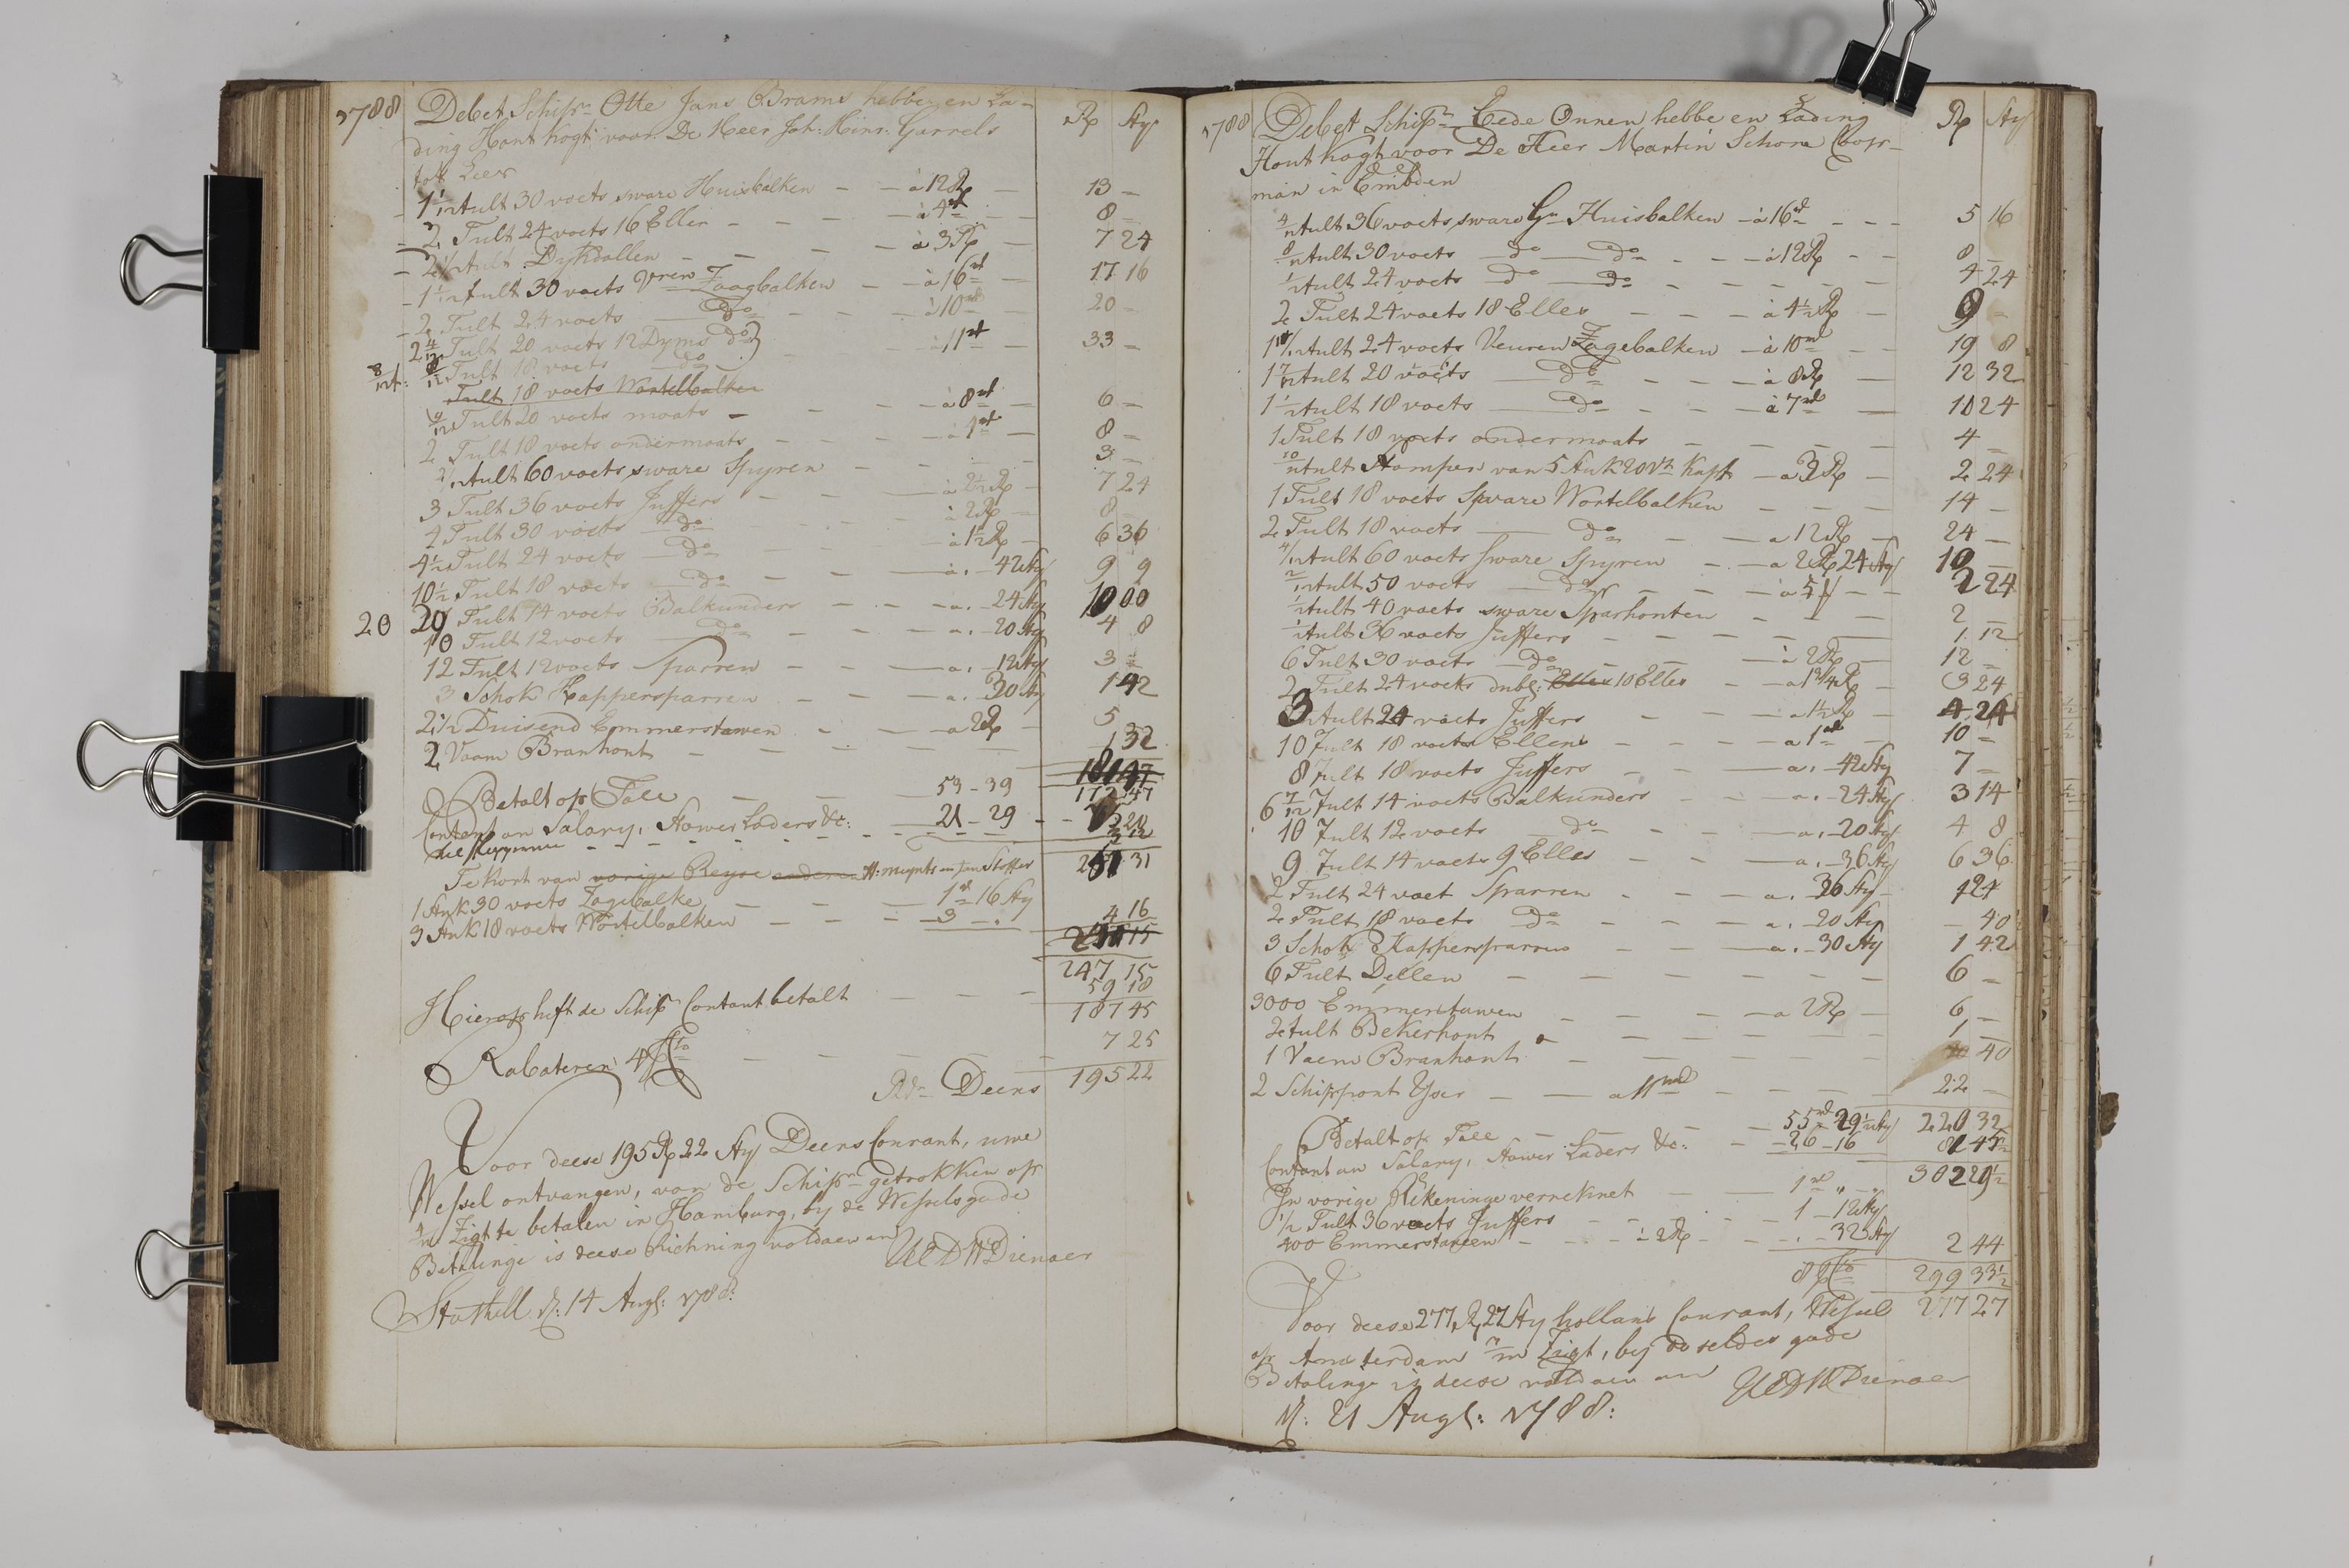 1788 Debet Schipr Otte Jans Brams hebbe en La-
ding Hout kogt voor De Heer Joh: Hinr: Garrels
tot Leer
Rd Sty
1 1/12 Tult 30 voets sware Huisbalken — à 12 Rd — 13 —
2 Tult 24 voets 16 Eller — à 4 rd — 8 —
2 1/2 Tult Dykdollen — à 3 Rd — 7 24
1 1/12 Tult 30 voets Vren Zaagbalken — à 16 rd — 17 16
2 Tult 24 voets do — à 10 rd — 20 —
2 4/12 Tult 20 voets 12 Dyms do
8/12 t: 8/12 Tult 18 voets do — à 11 rd — 33 —
Tult 18 voets Wortelbalken
9/12 Tult 20 voets moats — à 8 rd — 6 —
2 Tult 18 voets ondermoats — à 4 rd — 8 —
2/12 Tult 60 voets sware Spyren — 3 —
3 Tult 36 voets Juffers — à 2 1/2 Rd — 7 24
4 Tult 30 voets do — à 2 Rd — 8 —
4 1/2 Tult 24 voets do — à 1 1/2 Rd — 6 36
10 1/2 Tult 18 voets do — à . — 42 Sty 9 9
20 20 Tult 14 voets Balkunders — a . — 24 Sty 10 00
10 Tult 12 voets do — a . — 20 Sty 4 8
12 Tult 12 voets Sparren — a . — 12 Sty 3 —
3 Schok Kappersparren — a . 30 Sty 1 42
2 1/2 Duisend Emmerstawen — a 2 Rd 5
2 Vaam Branhout — 1 32
172 47
Betalt op Tole — 53 - 39
Contant an Salary, Stower Laders &c: — 21 - 29
31
Te Kort van vorige Reyse H: Meynts en Jan Stoffer
1 Styk 30 voets Zagebalke — 1 rd 16 Sty
3 Styk 18 voets Wortelbalken — 3 — . 4 16
247 15
59 18
Hierop heft de Schipr Contant betalt — 187 45
Rabateren 4 pCto — 7 25
Rdr Deens 195 22
Voor deese 195 Rd 22 Sty Deens Courant, uwe
Wessel ontvangen, van de Schipr getrokken op
4/m Zigt te betalen in Hamburg, by de Wessels goede
Betalinge is deese Richning voldaen an
UED WDienaer
Stathell d: 14 Augs: 1788:
1788 Debet Schipr Eede Onnen hebbe en Lading
Hout kogt voor De Heer Martin Schone Coop-
man in Embden
Rd Sty
4/12 Tult 36 voets sware Gr Huisbalken — à 16 rd — 5 16
8/12 Tult 30 voets do do — à 12 Rd — 8 —
1/2 Tult 24 voets do do — 4 24
2 Tult 24 voets 18 Eller — à 4 1/2 Rd — 9 —
1 11/12 Tult 24 voets Veuren Zagebalken — à 10 rd — 19 8
1 7/12 Tult 20 voets do — à 8 Rd — 12 32
1 1/2 Tult 18 voets do — à 7 rd — 10 24
1 Tult 18 voets ondermoats — 4 —
10/12 Tult Stompen van 5 Stuk 20 Vt Kapt — a 3 Rd — 2 24
1 Tult 18 voets Sware Wortelbalken — 14 —
2 Tult 18 voets do — a 12 Rd — 24 —
4/12 Tult 60 voets Sware Spyren — a 2 Rd 24 Sty 10 —
2/12 Tult 50 voets do — 2 24
1/2 Tult 40 voets sware Sparhouten — 2 —
1/2 Tult 36 voets Juffers — 1 12
6 Tult 30 voets do — à 2 Rd — 12 —
2 Tult 24 voets dubl: 10 Eller — a 1 3/4 Rd — 3 24
3 Tult 24 voets Juffers — a 1 1/2 Rd 4 24
10 Tult 18 voets Ellens — a 1 rd 10 —
8 Tult 18 voets Juffers — a . — 42 Sty 7 —
6 7/12 Tult 14 voets Balkunders — a . — 24 Sty 3 14
10 Tult 12 voets do — a . — 20 Sty 4 8
9 Tult 14 voets 9 Elles — a . — 36 Sty 6 36
2 Tult 24 voet Sparren — a . 36 Sty 1 24
2 Tult 18 voets do — a . — 20 Sty — 40
3 Schok Kappersparren — a . — 30 Sty 1 42
6 Tult Dellen — 6 —
3000 Emmerstawen — a 2 Rd 6 —
2 Tult Bekerhout — 1 —
1 Vaem Branhout — 40
2 Schippont Yser — a 11 rd — 22 —
220 32
Betalt op Tole — 55 rd - 29 1/2 Sty
Contant an Salary, Stower Laders &c: — 26 - 16
302 29 1/2
In vorige Rikeninge verreknet — 1 rd " — "
1/2 Tult 36 voets Juffers — 1 — 12 Sty
400 Emmerstawen — à 2 Rd — . — 32 Sty 2 44
299 33 1/2
8 pCto 277 27
Voor deese 277 Rd 27 Sty Hollans Courant, Wessel
op Amsterdam m Zigt, bij do selder goede
Betalinge is deese voldaen an UEDWDienaer
d: 21 Augs: 1788: